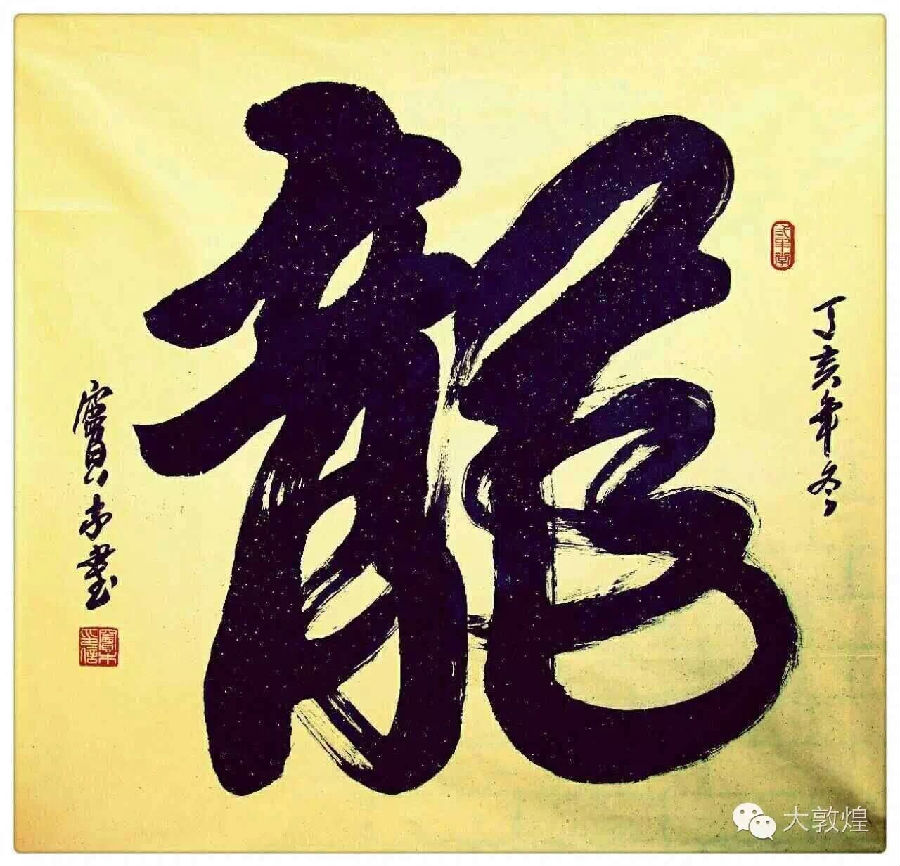 龍
丁亥年冬
寶木書
大敦煌